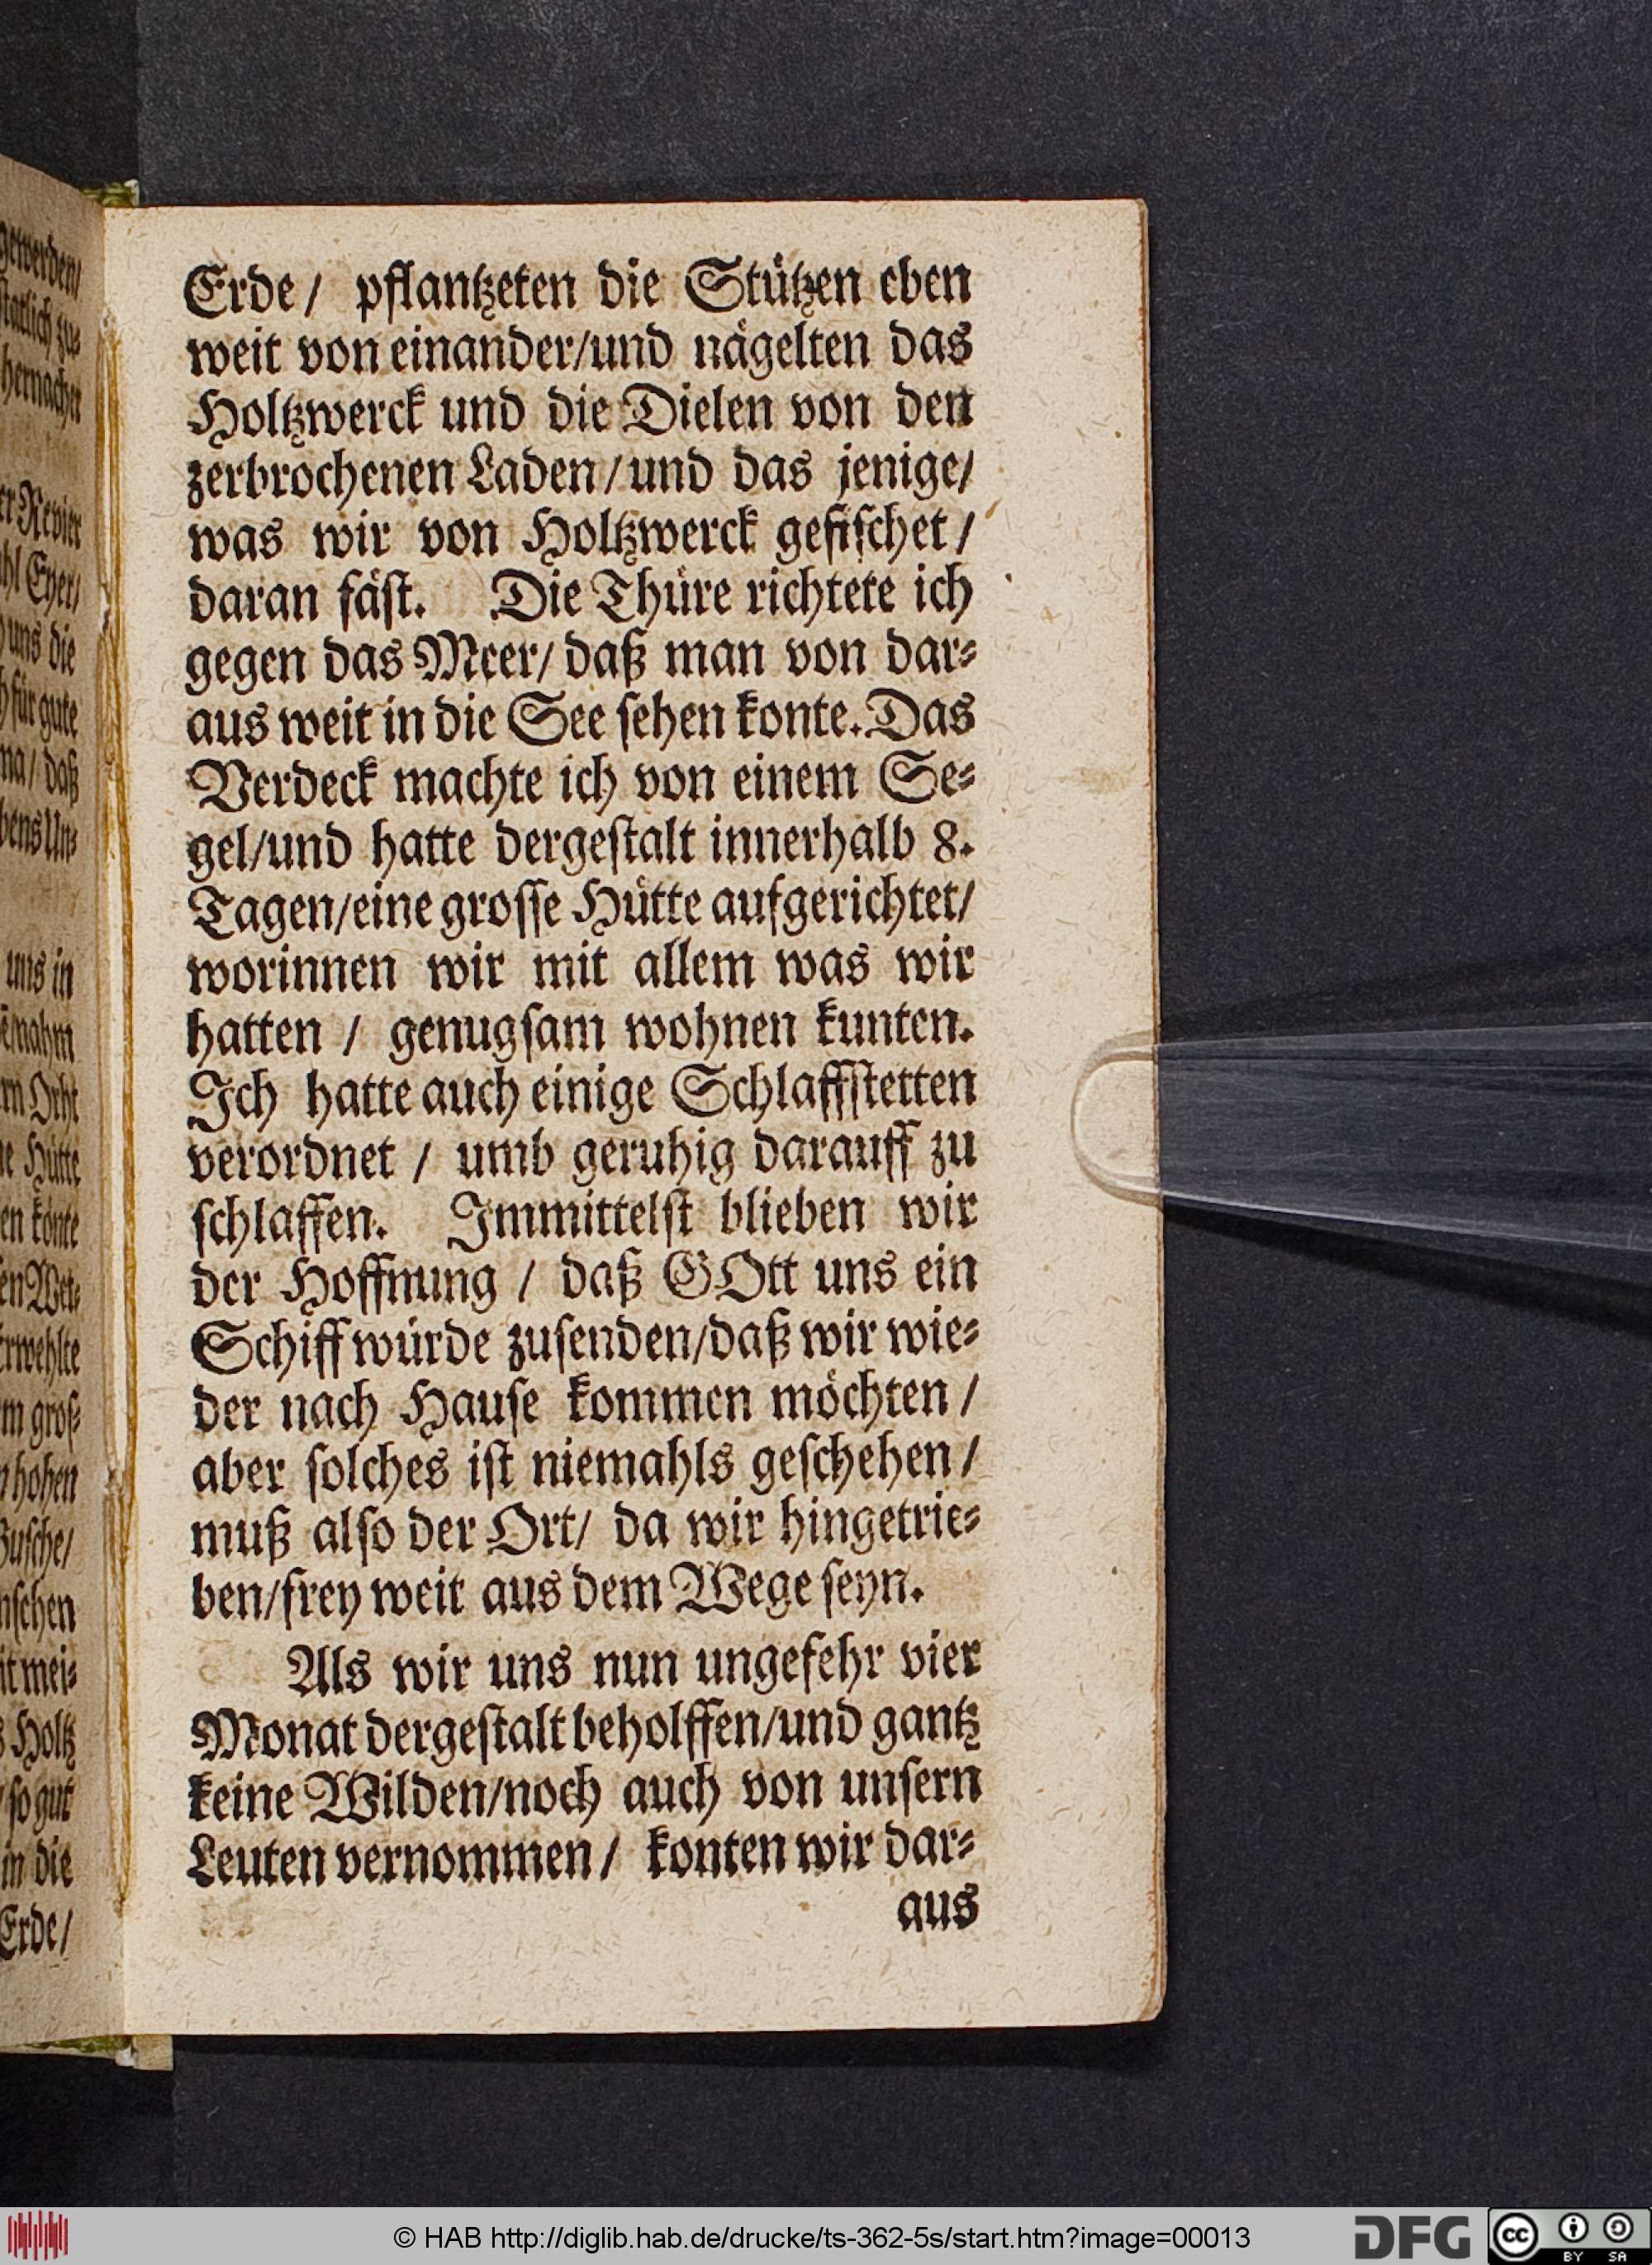 Erde / pflantzeten die Stützen eben
weit von einander/und nägelten das
Holtzwerck und die Dielen von den
zerbrochenen Laden / und das jenige/
was wir von Holtzwerck gefiſchet /
daran fäſt. Die Thüre richtete ich
gegen das Meer/ daß man von dar⸗
aus weit in die See ſehen konte. Das
Verdeck machte ich von einem Se⸗
gel/und hatte dergeſtalt innerhalb 8.
Tagen/eine groſſe Hütte aufgerichtet/
worinnen wir mit allem was wir
hatten / genugſam wohnen kunten.
Ich hatte auch einige Schlaffſtetten
verordnet / umb geruhig darauff zu
ſchlaffen. Immittelſt blieben wir
der Hoffnung / daß GOtt uns ein
Schiff würde zuſenden/daß wir wie⸗
der nach Hauſe kommen möchten /
aber ſolches iſt niemahls geſchehen /
muß alſo der Ort/ da wir hingetrie⸗
ben/frey weit aus dem Wege ſeyn.
Als wir uns nun ungefehr vier
Monat dergeſtalt beholffen/und gantz
keine Wilden/noch auch von unſern
Leuten vernommen / konten wir dar⸗
aus
© HAB http://diglib.hab.de/drucke/ts-362-5s/start.htm?image=00013
DFG
cc BY SA